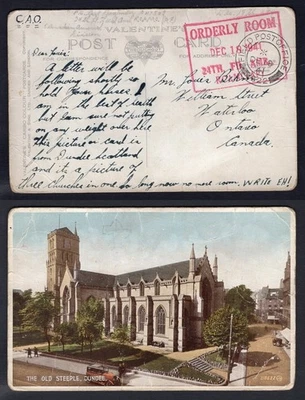 C.A.O.
VALENTINE'S
POST CARD
ORDERLY ROOM
DEC 19 1941
24TH. FI
FIELD POST OFFICE
Dear Jonie:
A letter will be
following shortly so
hold your horses. I
am in the best of health
but I am sure not putting
on any weight over here
this picture or card is
from Dundee Scotland
and it's a picture of
three churches in one so long now no more room. WRITE EH!
Mr. Jones
William Street
Waterloo
Ontario
Canada.
THE OLD STEEPLE, DUNDEE.